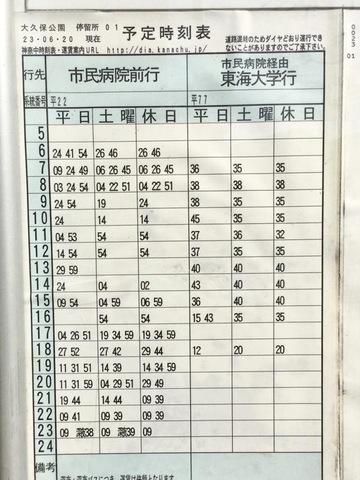 大久保公園 停留所 01 予定時刻表
23・06・20 現在 道路混雑のためダイヤどおり運行でき
神奈中時刻表・運賃案内URL http://dia.kanachu.jp/ ないことがありますのでご了承下さい。
行先 市民病院前行 市民病院経由
東海大学行
系統番号 平22 平77
平日 土曜 休日 平日 土曜 休日
5
6 24 41 54 26 46 26 46
7 09 24 49 06 26 45 06 26 45 36 35 35
8 03 24 54 04 22 51 04 22 51 38 38 38
9 24 54 19 24 38 35 35
10 24 14 14 45 35 35
11 04 53 54 54 37 36 32
12 14 54 54 54 37 35 35
13 29 59 40 40 40
14 24 04 02 43 40 40
15 09 54 04 59 06 59 40 40
16 54 54 15 43 35 35
17 04 26 51 19 34 59 19 34 59
18 27 52 27 42 29 44 12 20 20
19 11 31 51 14 39 14 34 59
20 11 31 59 04 29 51 29 49
21 19 44 14 44 09 39
22 09 41 09 39 09 39
23 09 38 09 39 09
24
備考
0023
01